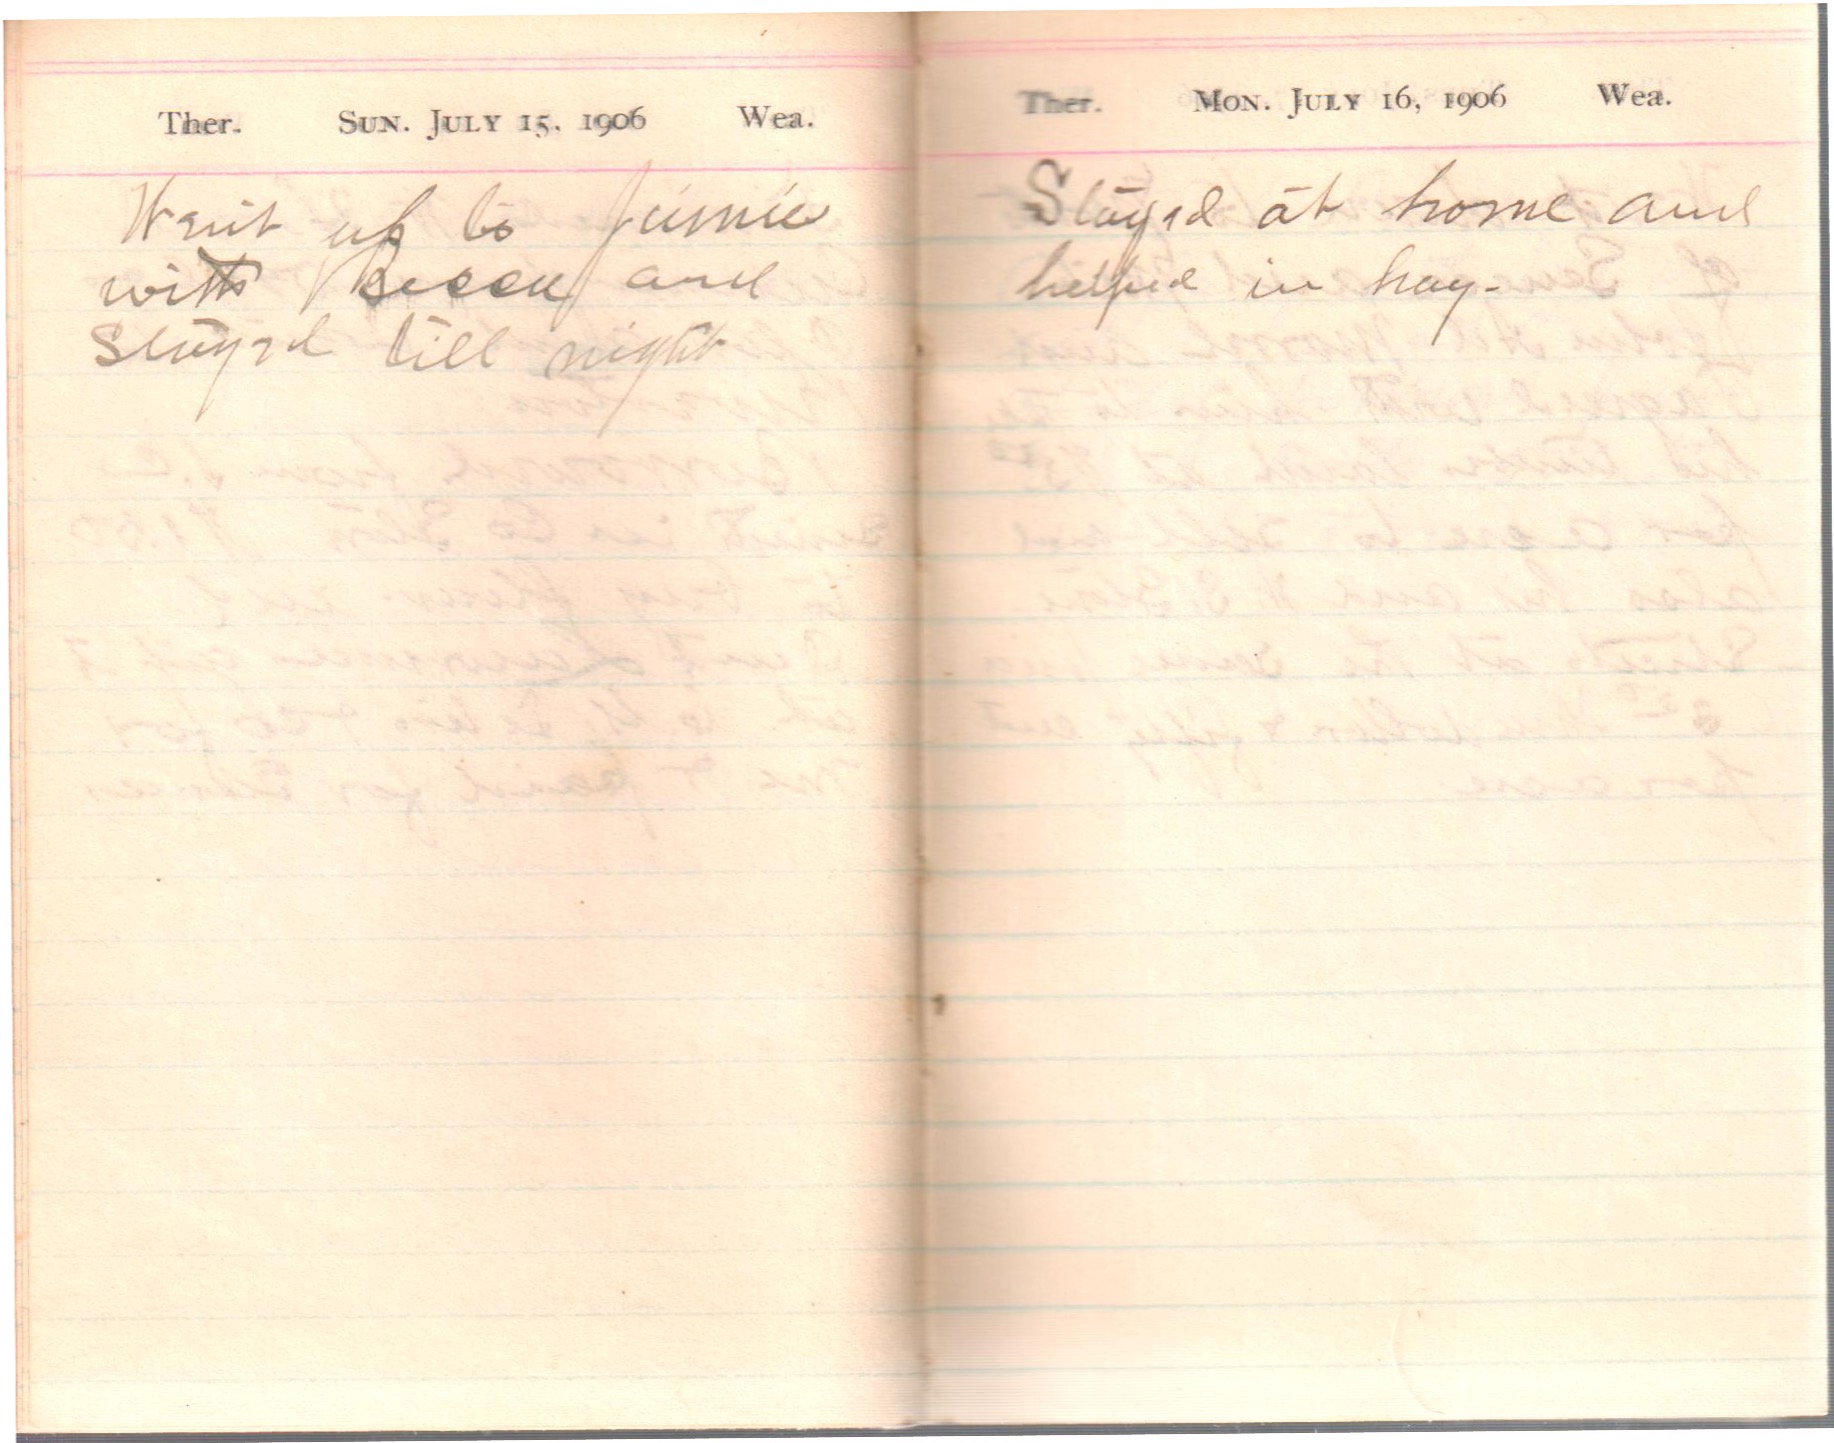 Ther. Sun. July 15, 1906 Wea.
Went up to Jimmie
with and
Stayed till night
Ther. Mon. July 16, 1906 Wea.
Stayed at home and
helped in hay.